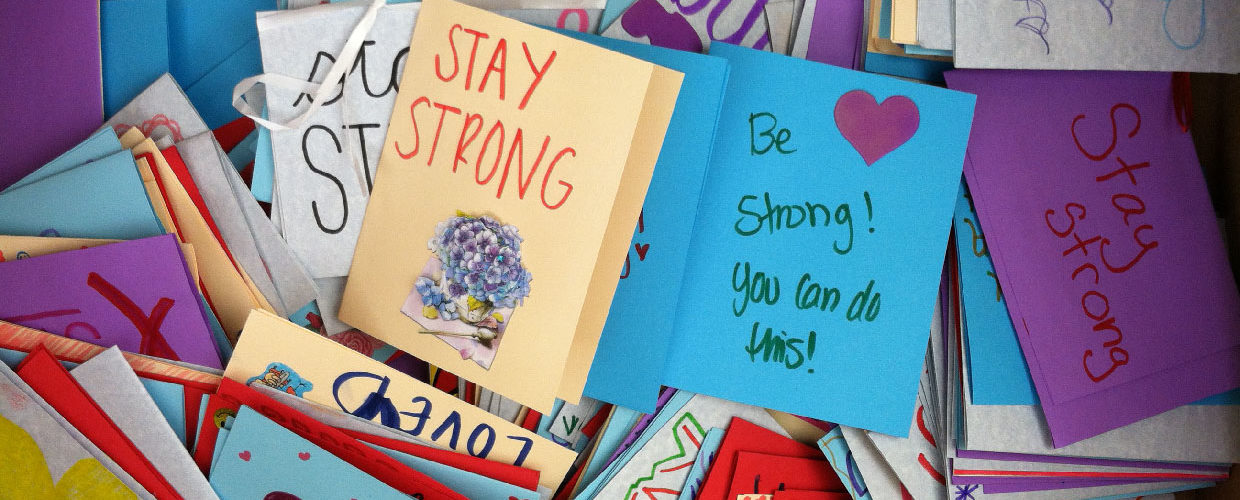 STAY
STRONG
Be
Strong!
You can do
this!
Stay
Strong
LOVED